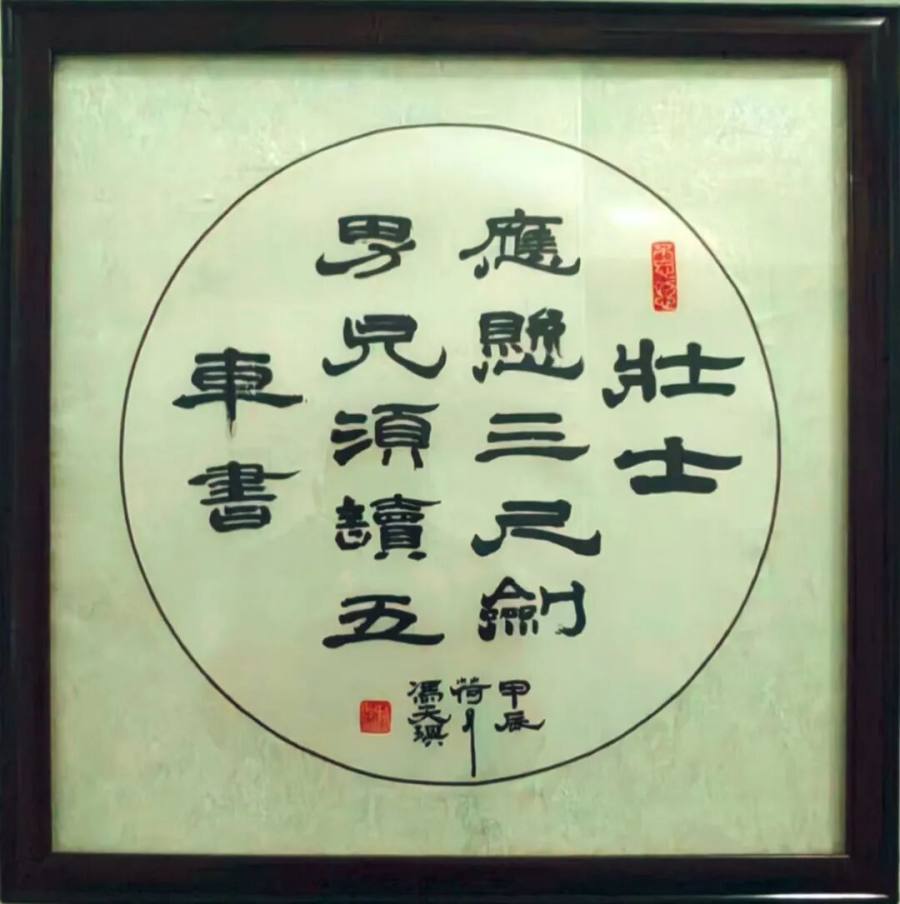 壯士
應懸三尺劍
男兒須讀五
車書
甲辰
荷月
馮天琪